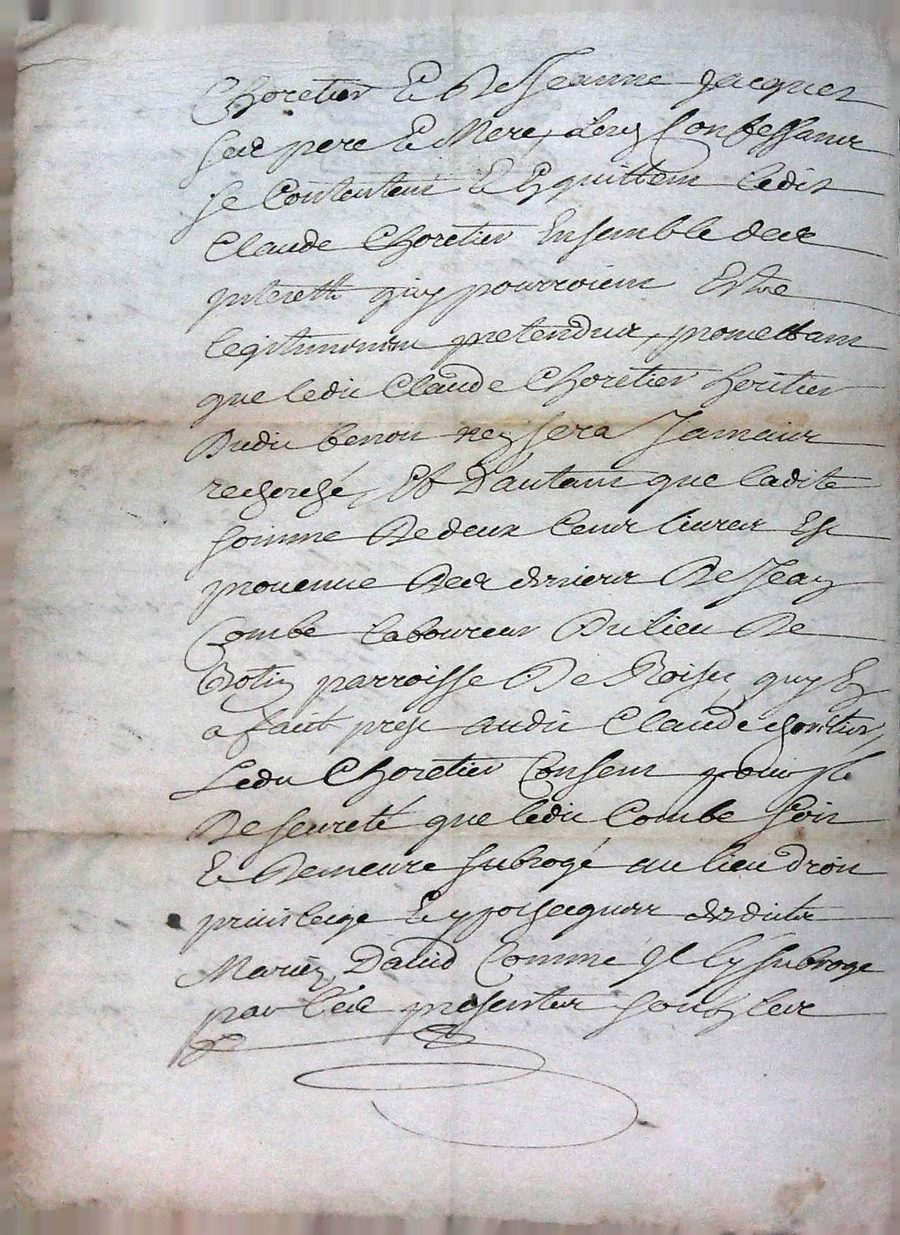 Choretier Et De Jeanne Jacques
ses pere Et Mere, s'en Confessant
se Contentent Et En quittent ledit
Claude Choretier Ensemble des
jnterests quy pourroient Estre
legitimement pretendus, promettant
que ledit Claude Choretier heritier
Dudit benoit n'en sera Jamais
recherché, Et D'autant que ladite
somme De deux Cent livres Est
prouenue Des deniers De Jean
Combe laboureur Du lieu De
parroisse De Roisey, quy En
a faict prest audit Claude Choretier,
Ledit Choretier Consent pour
De seureté que ledit Combe soit
Et Demeure subrogé au lieu droit
priuileige Et ypothecques desdicts
Mariez David Comme Jl ly subroge
par Ces presentes soubz les